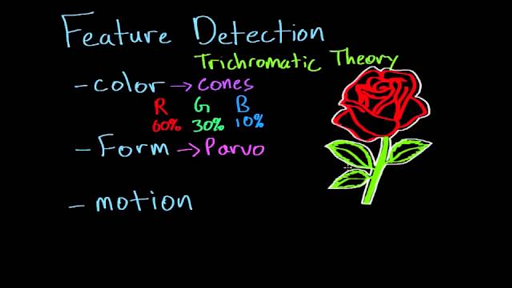 Feature Detection
Trichromatic Theory
- color → cones
R G B
60% 30% 10%
- Form → Parvo
- motion